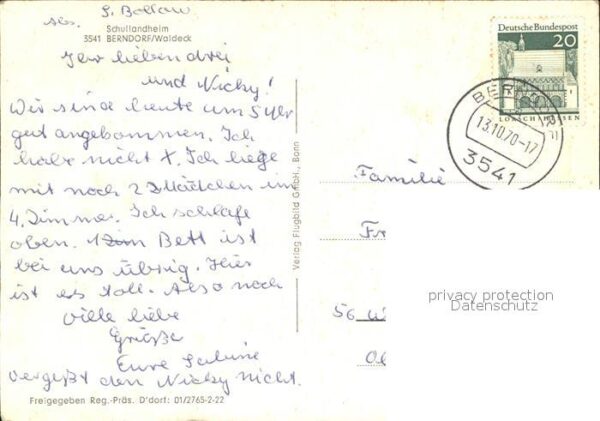 Abs. S. Bollau
Schullandheim
3541 BERNDORF/Waldeck
Ihr lieben drei
und Nicky!
Wir sind heute um 5 Uhr
gut angekommen. Ich
habe nicht +. Ich liege
mit noch 2 Mädchen im
4. Zimmer. Ich schlafe
oben. 1 Bett ist
bei uns übrig. Hier
ist es toll. Also noch
viele liebe
Grüße
Eure Sabine
vergeßt den Nicky nicht.
Freigegeben Reg.-Präs. D'dorf: 01/2765-2-22
Verlag Flugbild GmbH., Bonn
Deutsche Bundespost
20
LORSCH/HESSEN
BERNDORF
13.10.70-17
3541
Familie
Fr
56 W
privacy protection
Datenschutz